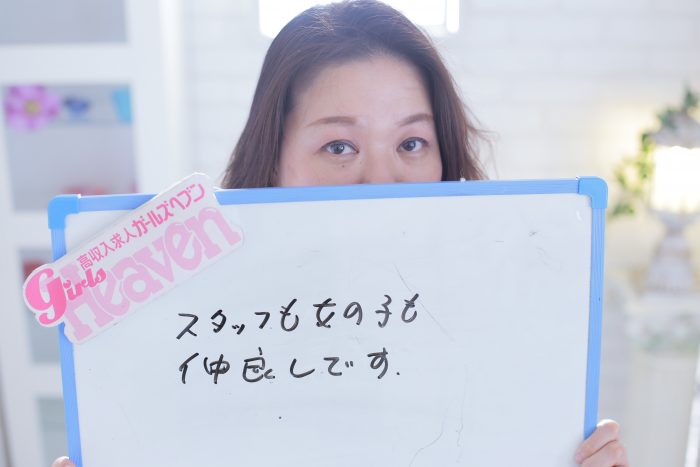 高収入求人ガールズヘブン
girls Heaven
スタッフも女の子も
仲良しです.